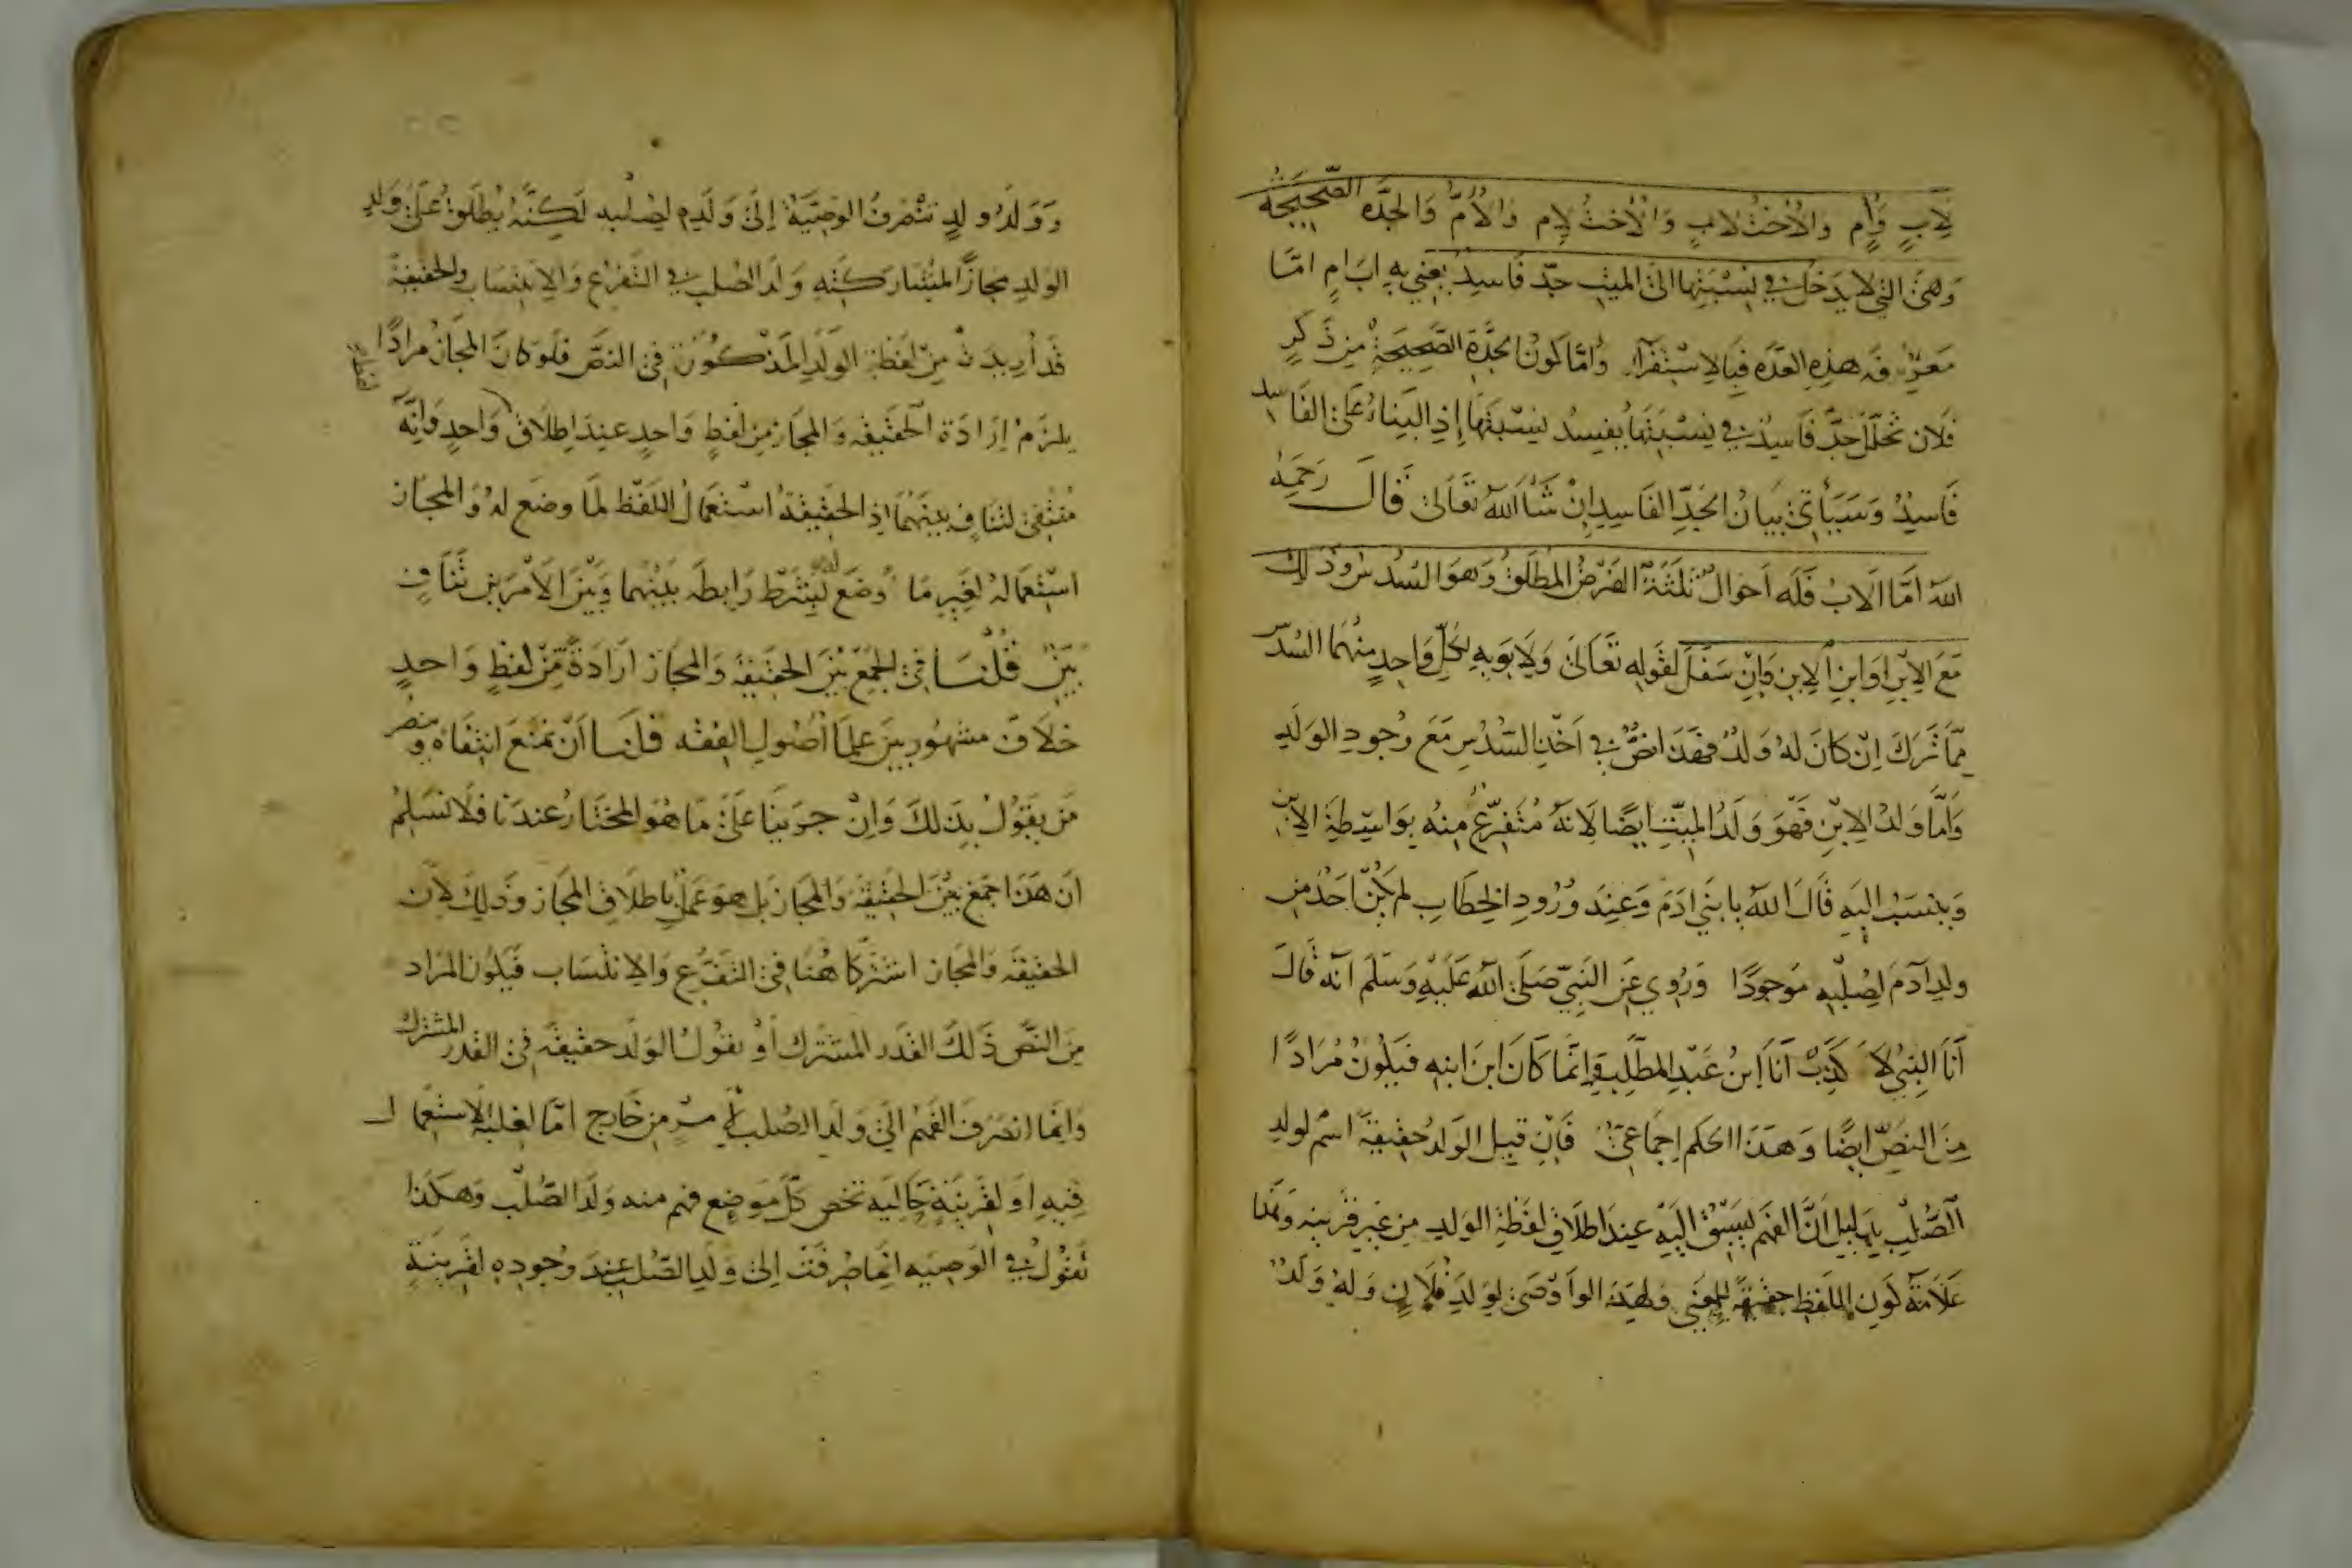 لِابٍ وَاُمٍ وَالأُخْتُ لِابٍ وَالْأُخْتُ لِاُمٍ وَالْأُمُّ وَالجَدَّه الصَّحِيحَةُ
وَهِىَ التى لا يَدخُلُ في نِسْبَتِهَا الىَ الميتِ جدّ فَاسِدٌ يعني به ابَ امٍ امّا
مَعرِفَه هذِهِ العدَّه فبِالِاسْتِقرَآءِ وَاَمَّا كَونُ الجَدَّةِ الصَّحِيحَةِ مِن ذَكرٍ
فَلِان تخلّلَ جَدّ فَاسِدٍ في نِسْبَتِهَا يُفسِدُ نِسْبَتَهَا إِذِ البِنَاءُ عَلىَ الفَاسِد
فَاسِدٌ وَسَيَأتى بَيَانُ الجَدِّ الفَاسِدِ اِنْ شَآ اللّهُ تعَالىَ قَالَ رَحمَهُ
اللّهُ اَمَّا الَابُ فَلَه اَحوَالٌ ثَلثَةٌ الفَرْضُ المُطلَقُ وَهوَ السُدسُ وَذَلِكَ
مَعَ الاِبْنِ اوَابنِ الاِبنِ وَاِنْ سَفلَ لقَولِهِ تعَالىَ وَلِابَوَيهِ لِكُلِّ وَاحِدٍ مِنهُمَا السُدسُ
مِمَّا تَرَكَ اِنْ كَانَ لهُ وَلَدٌ فهَذَا نصٌّ في اَخْذِ السُّدسِ مَعَ وجُودِ الوَلَدِ
وَامَّا وَلَدُ الاِبْنِ فَهوَ وَلَدُ الميّتِ ايضًا لِانّهُ مُتَفرّعٌ مِنهُ بوَاسِطَةِ الاِبنِ
وَينسَبُ اِليَهِ قَالَ اللّهُ يا بنَي ادَمَ وَعِندَ وُرُودِ الخِطَابِ لم يكُنْ احَدٌ مِن
وَلدِ آدَمَ لِصُلبِهِ مَوجوُدًا وَرُوِيَ عَن النَبِيّ صَلىَ اللّهُ عَلَيْهِ وَسَلمَ انّه قَالَ
اَنَا النَبِيُّ لَا كَذِبْ اَنَا اِبنُ عَبْدِ المُطلِبْ وَاِنّمَا كَانَ ابنَ ابنِهِ فَيَكُونُ مُرَادًا
مِنَ النصِّ ايضًا وَهذَا الحكم اِجمَاعيّ فَاِنْ قيل الوَلدُ حقِيقَةً اسْم لولدِ
الصُّلْبِ بِدَلِيلِ اَنَّ الفهمَ يَسبِقُ اِلَيْهِ عِندَ اطلَاقِ لفظَةِ الوَلدِ مِن غيرِ قَرينه وَهَذا
عَلَامَةُ كَونِ اللفظِ حقيقَةً لِلمعنَى وَلِهذَا لو اَوْصَى لِوَلَدِ فُلَانٍ وَلهُ وَلَدٌ
وَوَلَدُ وَلدٍ تنْصَرفُ الوَصِيَّةُ اِلىَ وَلَدِهِ لِصُلبِهِ لَكِنَّهُ يُطلَقُ عَلىَ وَلدِ
الوَلدِ مجازًا لمُشَارَكتِهِ وَلَدَ الصُلبِ في التفَرّعِ وَالاِنتِسَابِ وَالحقيقَةُ
قَد اُرِيدَت مِنْ لفظةِ الوَلَدِ المَذكُورَةِ فِى النصِّ فلَو كَانَ المجَازُ مرَادًا
يلزَمُ اِرَادَة الحَقيقَه وَالمجَاز مِن لفظٍ وَاحدٍ عندَ اِطلَاقٍ وَاحدٍ وَاِنّهُ
مُنتَفىٍ لتنَافٍ بينَهمَا اذِ الحَقيقَةُ اسْتعمَالُ اللَفْظ لمَا وضعَ لهُ وَالمجَاز
اسْتِعمَالهُ لغَيرِ مَا وُضَعَ لهُ بِشَرْط رَابِطَه بَينهُما وَبَيْنَ الاَمْرَينِ تنَافٍ
بَيّنٌ قُلنَا في الجَمْعِ بَيْنَ الحَقيقةِ وَالمجَاز ارَادَةً مِنْ لفظٍ وَاحدٍ
خلَافٌ مشهُور بينَ علمَا أصُولِ الفِقْه فلَنَا اَنْ نمنَعَ انتِفَاهُ وَننصُر
مَن يقولُ بِذَلكَ وَاِنْ جرَيْنَا علىَ مَا هُوَ المختَارُ عندَنا فلَا نسَلِمُ
اَن هذَا جمَع بَيْنَ الحَقيقَه وَالمجَاز بَل هوَ عَمَلٌ بِاطلَاقِ المجَاز وَذَلِكَ لاِن
الحَقيقَه وَالمجَاز اشتَركَا هُنَا في التفَرّعِ وَالاِنتسَاب فيَكُون المرَاد
مِنَ النصِّ ذَلكَ القَدر المشتَرك أَو نقُولُ الوَلَد حقيقةً فى القدر المشترك
وَاِنّمَا انصَرَفَ الفَهْم الىَ وَلَدِ الصُلبِ لِأمرٍ مِن خَارج امّا لغلَبَةِ الِاسْتِعمَال
فِيهِ اَو لِقَرينَةٍ حَالِيَه تخُص كلّ مَوضِعٍ فهِم منه وَلَد الصُّلب وَهكَذا
نقُولُ في الوَصيَه اِنمَا صُرفَت اِلىَ وَلَدِ الصُّلبِ عِندَ وجُودِهِ لقَرينَةٍ